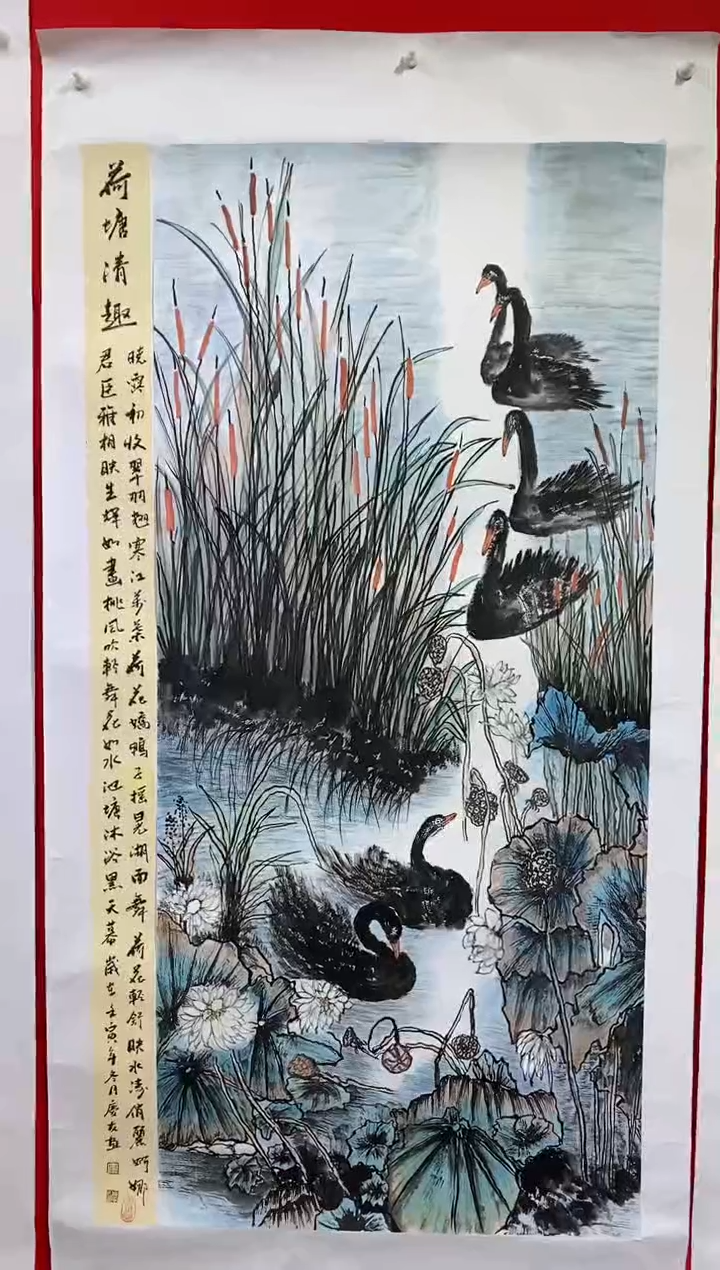 荷塘清趣
晓露初收翠羽翘寒江万朵荷花娇鸭子摇晃湖面舞荷花轻舒映水涛俏丽婀娜
君臣雅相映生辉如画挑风吹轻舞花如水池塘沐浴黑天暮岁在壬寅年冬月